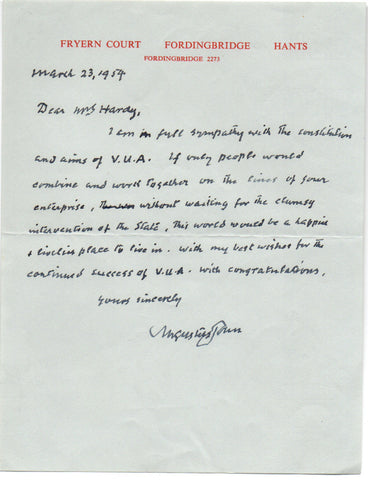 FRYERN COURT FORDINGBRIDGE HANTS
FORDINGBRIDGE 2273
March 23, 1954
Dear Mrs Hardy,
I am in full sympathy with the constitution
and aims of V.U.A. If only people would
combine and work together on the lines of your
enterprise, without waiting for the clumsy
intervention of the State, this world would be a happier
& livelier place to live in. With my best wishes for the
continued success of V.U.A. with congratulations,
Yours sincerely
Augustus John